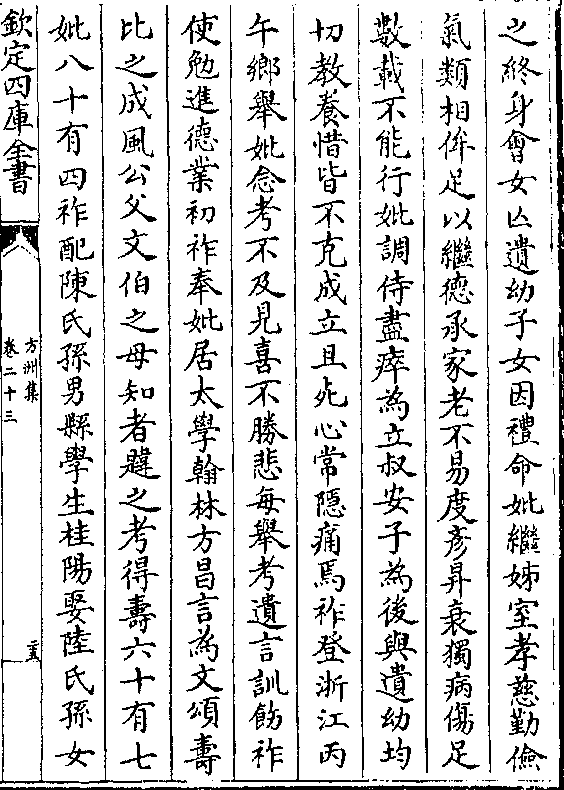 之終身會女亾遺幼子女因禮命妣繼姊室孝慈勤儉
氣類相侔足以繼德承家老不易度彥昇衰獨病傷足
數載不能行妣調侍盡瘁為立叔安子為後與遺幼均
切教養惜皆不克成立且死心常隱痛焉祚登浙江丙
午鄉舉妣念考不及見喜不勝悲每舉考遺言訓飭祚
使勉進德業初祚奉妣居太學翰林方昌言為文頌壽
比之成風公父文伯之母知者韙之考得壽六十有七
妣八十有四祚配陳氏孫男縣學生桂陽娶陸氏孫女
欽定四庫全書
方洲集
卷二十三
二五